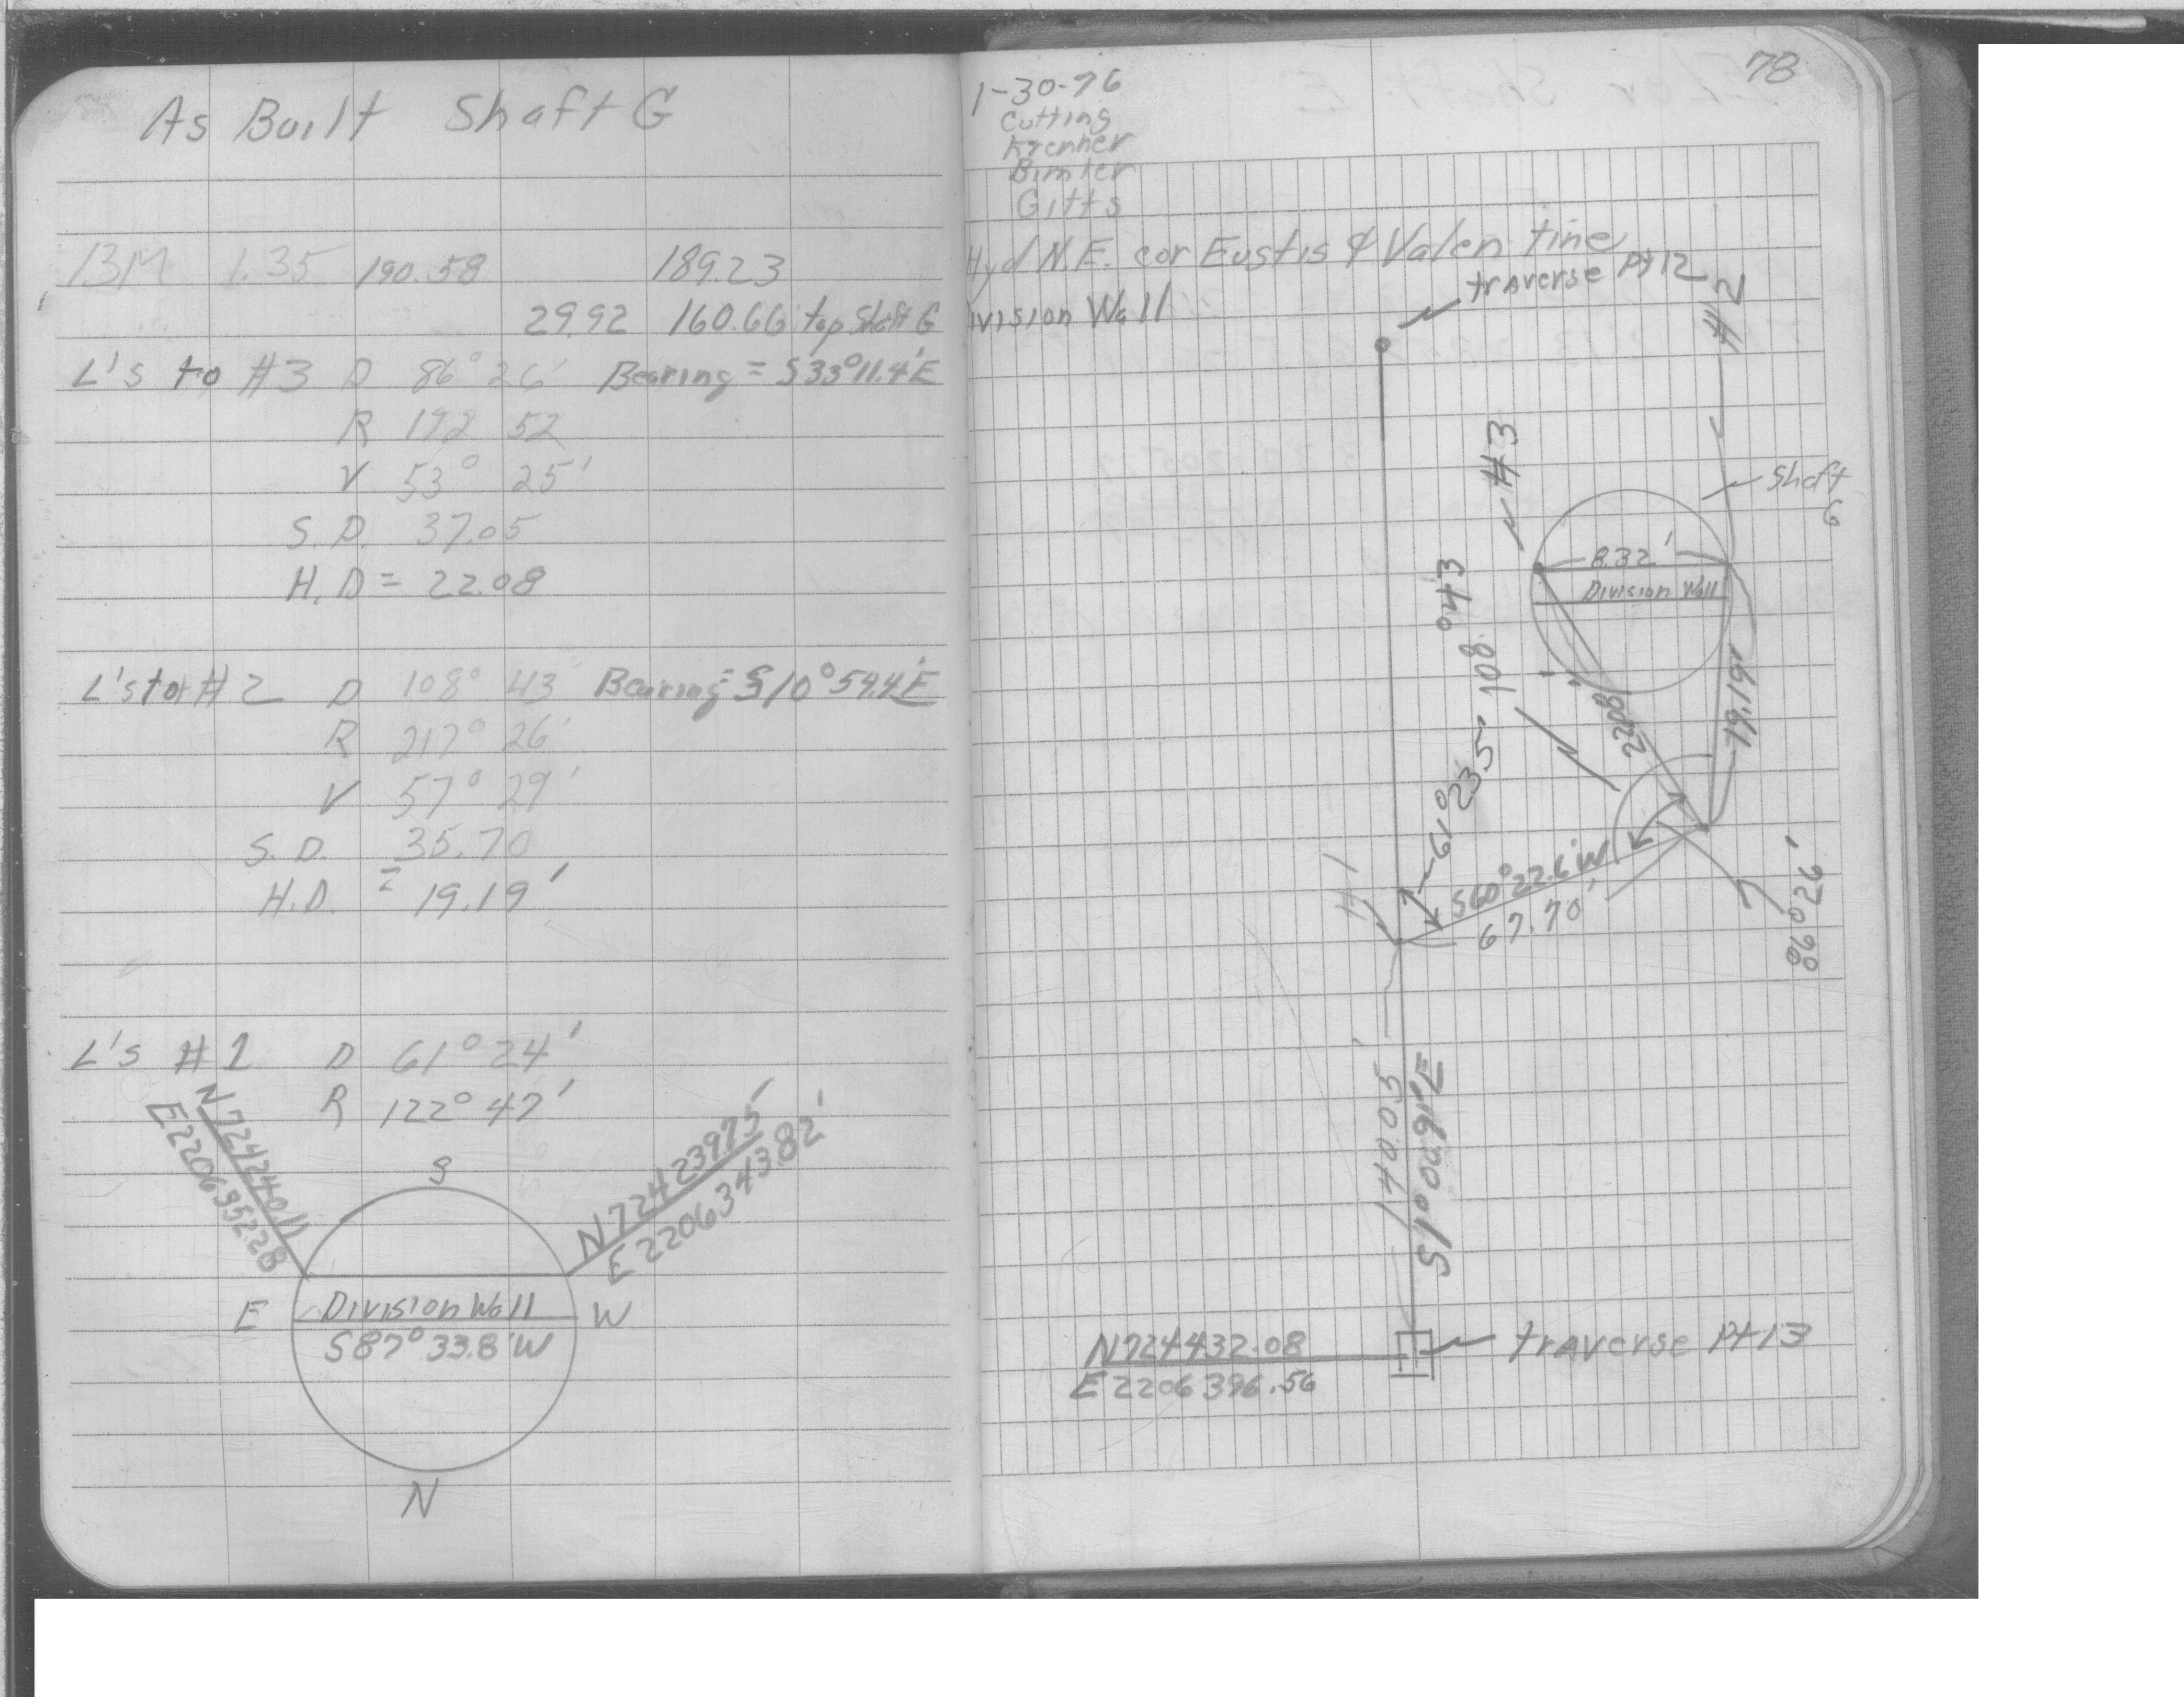 As Built Shaft G
BM 1.35 190.58 189.23
29.92 160.66 top Shaft G
L's to #3 D 86° 26' Bearing = S33°11.4'E
R 172 52
V 53° 25'
S.D. 37.05
H.D = 22.08
L's to #2 D 108° 43 Bearing = S10°54.4'E
R 217° 26'
V 57° 29'
S.D. 35.70
H.D. = 19.19'
L's #1 D 61° 24'
R 122° 47'
N724240.11
E2206352.28
N724239.75'
E2206343.82'
S
E Division Wall W
S87°33.8'W
N
78
1-30-76
Cutting
Bimler
Gitts
Hyd N.E. cor Eustis & Valentine
ivision Wall
traverse Pt 12
#2
#3
Shaft
G
8.32'
Division Wall
108°43
22.08'
19.19'
61°23.5'
S60°22.6'W
67.70'
86°26'
#1
140.05'
S1°00.91'E
N724432.08
E2206396.56
traverse Pt 13